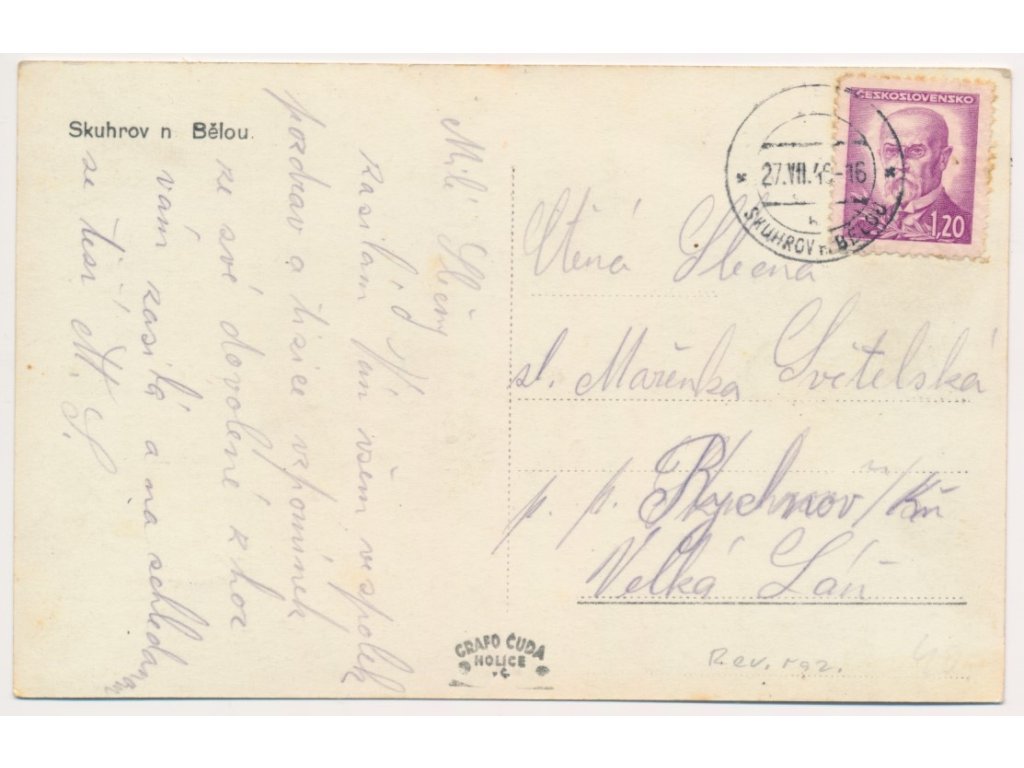 Skuhrov n Bělou.
Milé Slečny
zasílám Vám všem vespolek
pozdrav a tisíce vzpomínek
ze své dovolené z hor
vám zasílá a na schledanou
se těší M. S.
ČESKOSLOVENSKO
1,20
27.VII.46-16
SKUHROV n. BĚLOU
Ctěná Slečna
sl. Mařenka Světelská
p. p. Rychnov / Kn
Velká Láň
GRAFO ČUDA
HOLICE
v. Č.
Rev. raz.